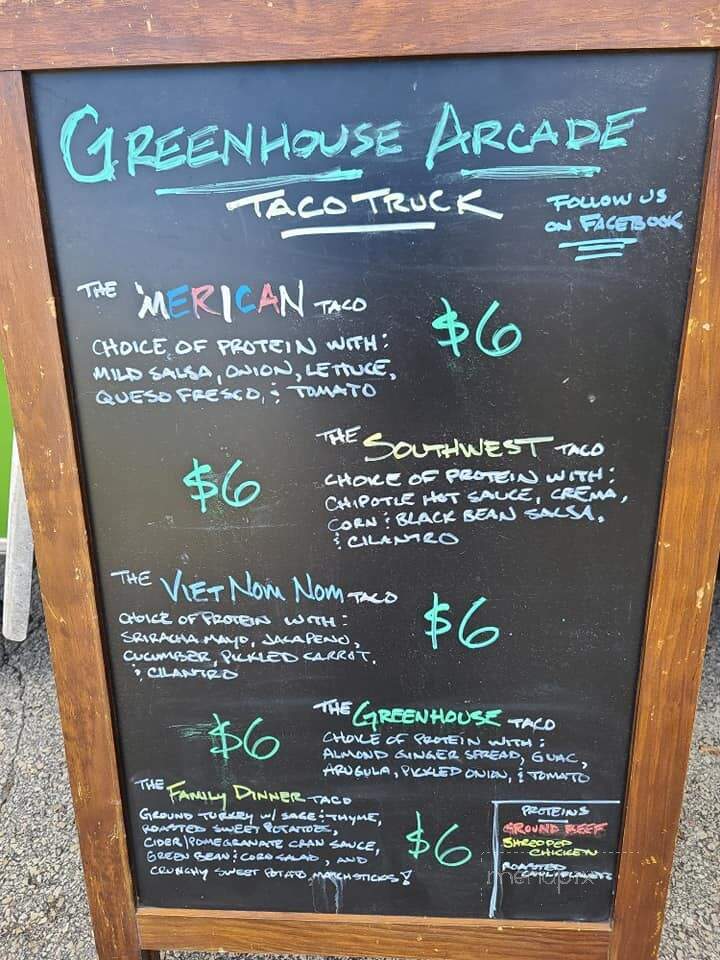 GREENHOUSE ARCADE
TACO TRUCK
FOLLOW US
ON FACEBOOK
THE 'MERICAN TACO
$6
CHOICE OF PROTEIN WITH:
MILD SALSA, ONION, LETTUCE,
QUESO FRESCO, & TOMATO
THE SOUTHWEST TACO
$6
CHOICE OF PROTEIN WITH:
CHIPOTLE HOT SAUCE, CREMA,
CORN & BLACK BEAN SALSA,
& CILANTRO
THE VIET NOM NOM TACO
$6
CHOICE OF PROTEIN WITH:
SRIRACHA MAYO, JALAPENO,
CUCUMBER, PICKLED CARROT,
& CILANTRO
THE GREENHOUSE TACO
$6
CHOICE OF PROTEIN WITH:
ALMOND GINGER SPREAD, GUAC,
ARUGULA, PICKLED ONION, & TOMATO
THE FAMILY DINNER TACO
$6
GROUND TURKEY W/ SAGE & THYME,
ROASTED SWEET POTATOES,
CIDER/POMEGRANATE CRAN SAUCE,
GREEN BEAN & CORN SALAD, AND
CRUNCHY SWEET POTATO MATCHSTICKS!
PROTEINS
GROUND BEEF
SHREDDED
CHICKEN
ROASTED
CAULIFLOWER
menupix